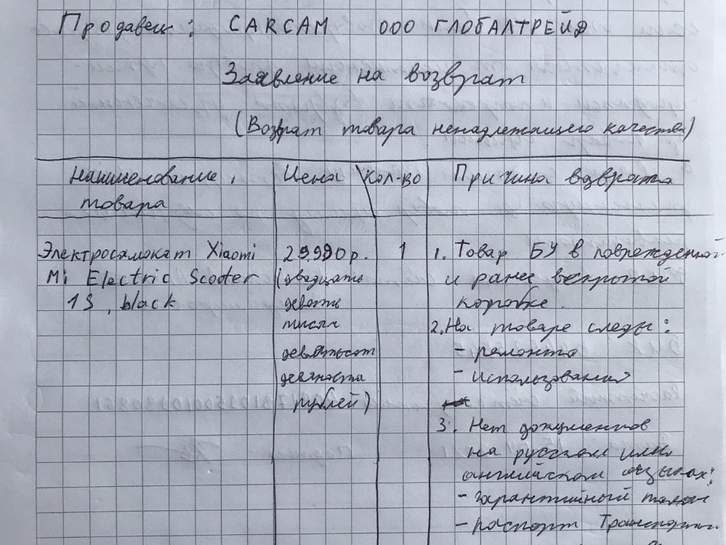 Продавец: CARCAM ООО ГЛОБАЛТРЕЙД
Заявление на возврат
(Возврат товара ненадлежащего качества)
Наименование товара | Цена | Кол-во | Причина возврата
Электросамокат Xiaomi
Mi Electric Scooter
1S, black
29.990р.
(двадцать
девять
тысяч
девятьсот
девяносто
рублей)
1
1. Товар БУ в поврежденной
и ранее вскрытой
коробке.
2. На товаре следы:
- ремонта
- использования
3. Нет документов
на русском или
английском языках:
- гарантийный талон
- паспорт Транспортн.